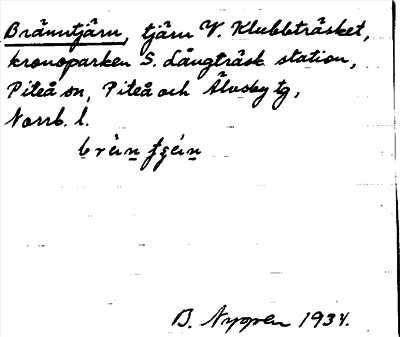 Bränntjärn, tjärn V. Klubbträsket,
kronoparken S. Långträsk station,
Piteå sn, Piteå och Älvsby tg,
Norrb. l.
B. Nyppen 1934.